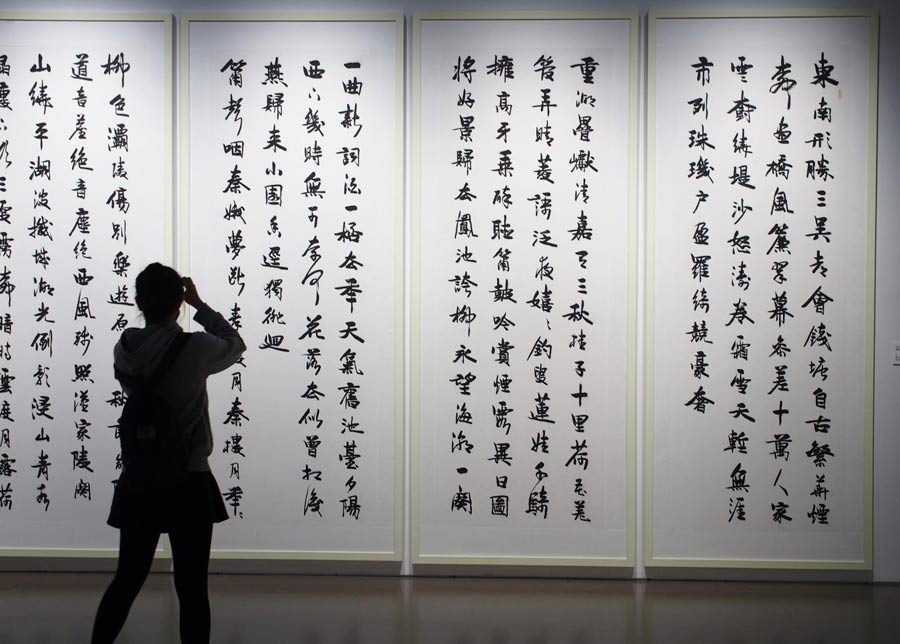 東南形勝三吴都會錢塘自古繁華煙
柳畫橋風簾翠幕参差十萬人家
雲樹繞堤沙怒濤卷霜雪天塹無涯
市列珠璣户盈羅綺競豪奢
重湖疊巘清嘉有三秋桂子十里荷花羌
管弄晴菱謌泛夜嬉〻釣叟蓮娃千騎
擁高牙乘醉聽簫鼓吟賞煙霞異日圖
將好景歸去鳳池誇柳永望海潮一闋
一曲新詞酒一杯去年天氣舊池臺夕陽
西下幾時無可奈何花落去似曾相識
燕歸来小園香逕獨徘徊
簫聲咽秦娥夢斷秦樓月秦樓月年〻
柳色灞陵傷别樂遊原秋節
道音塵絶音塵絶西風殘照漢家陵闕
山繞平湖波撼城湖光倒影浸山青水
晶樓下欲三更霧柳暗時雲度月露荷